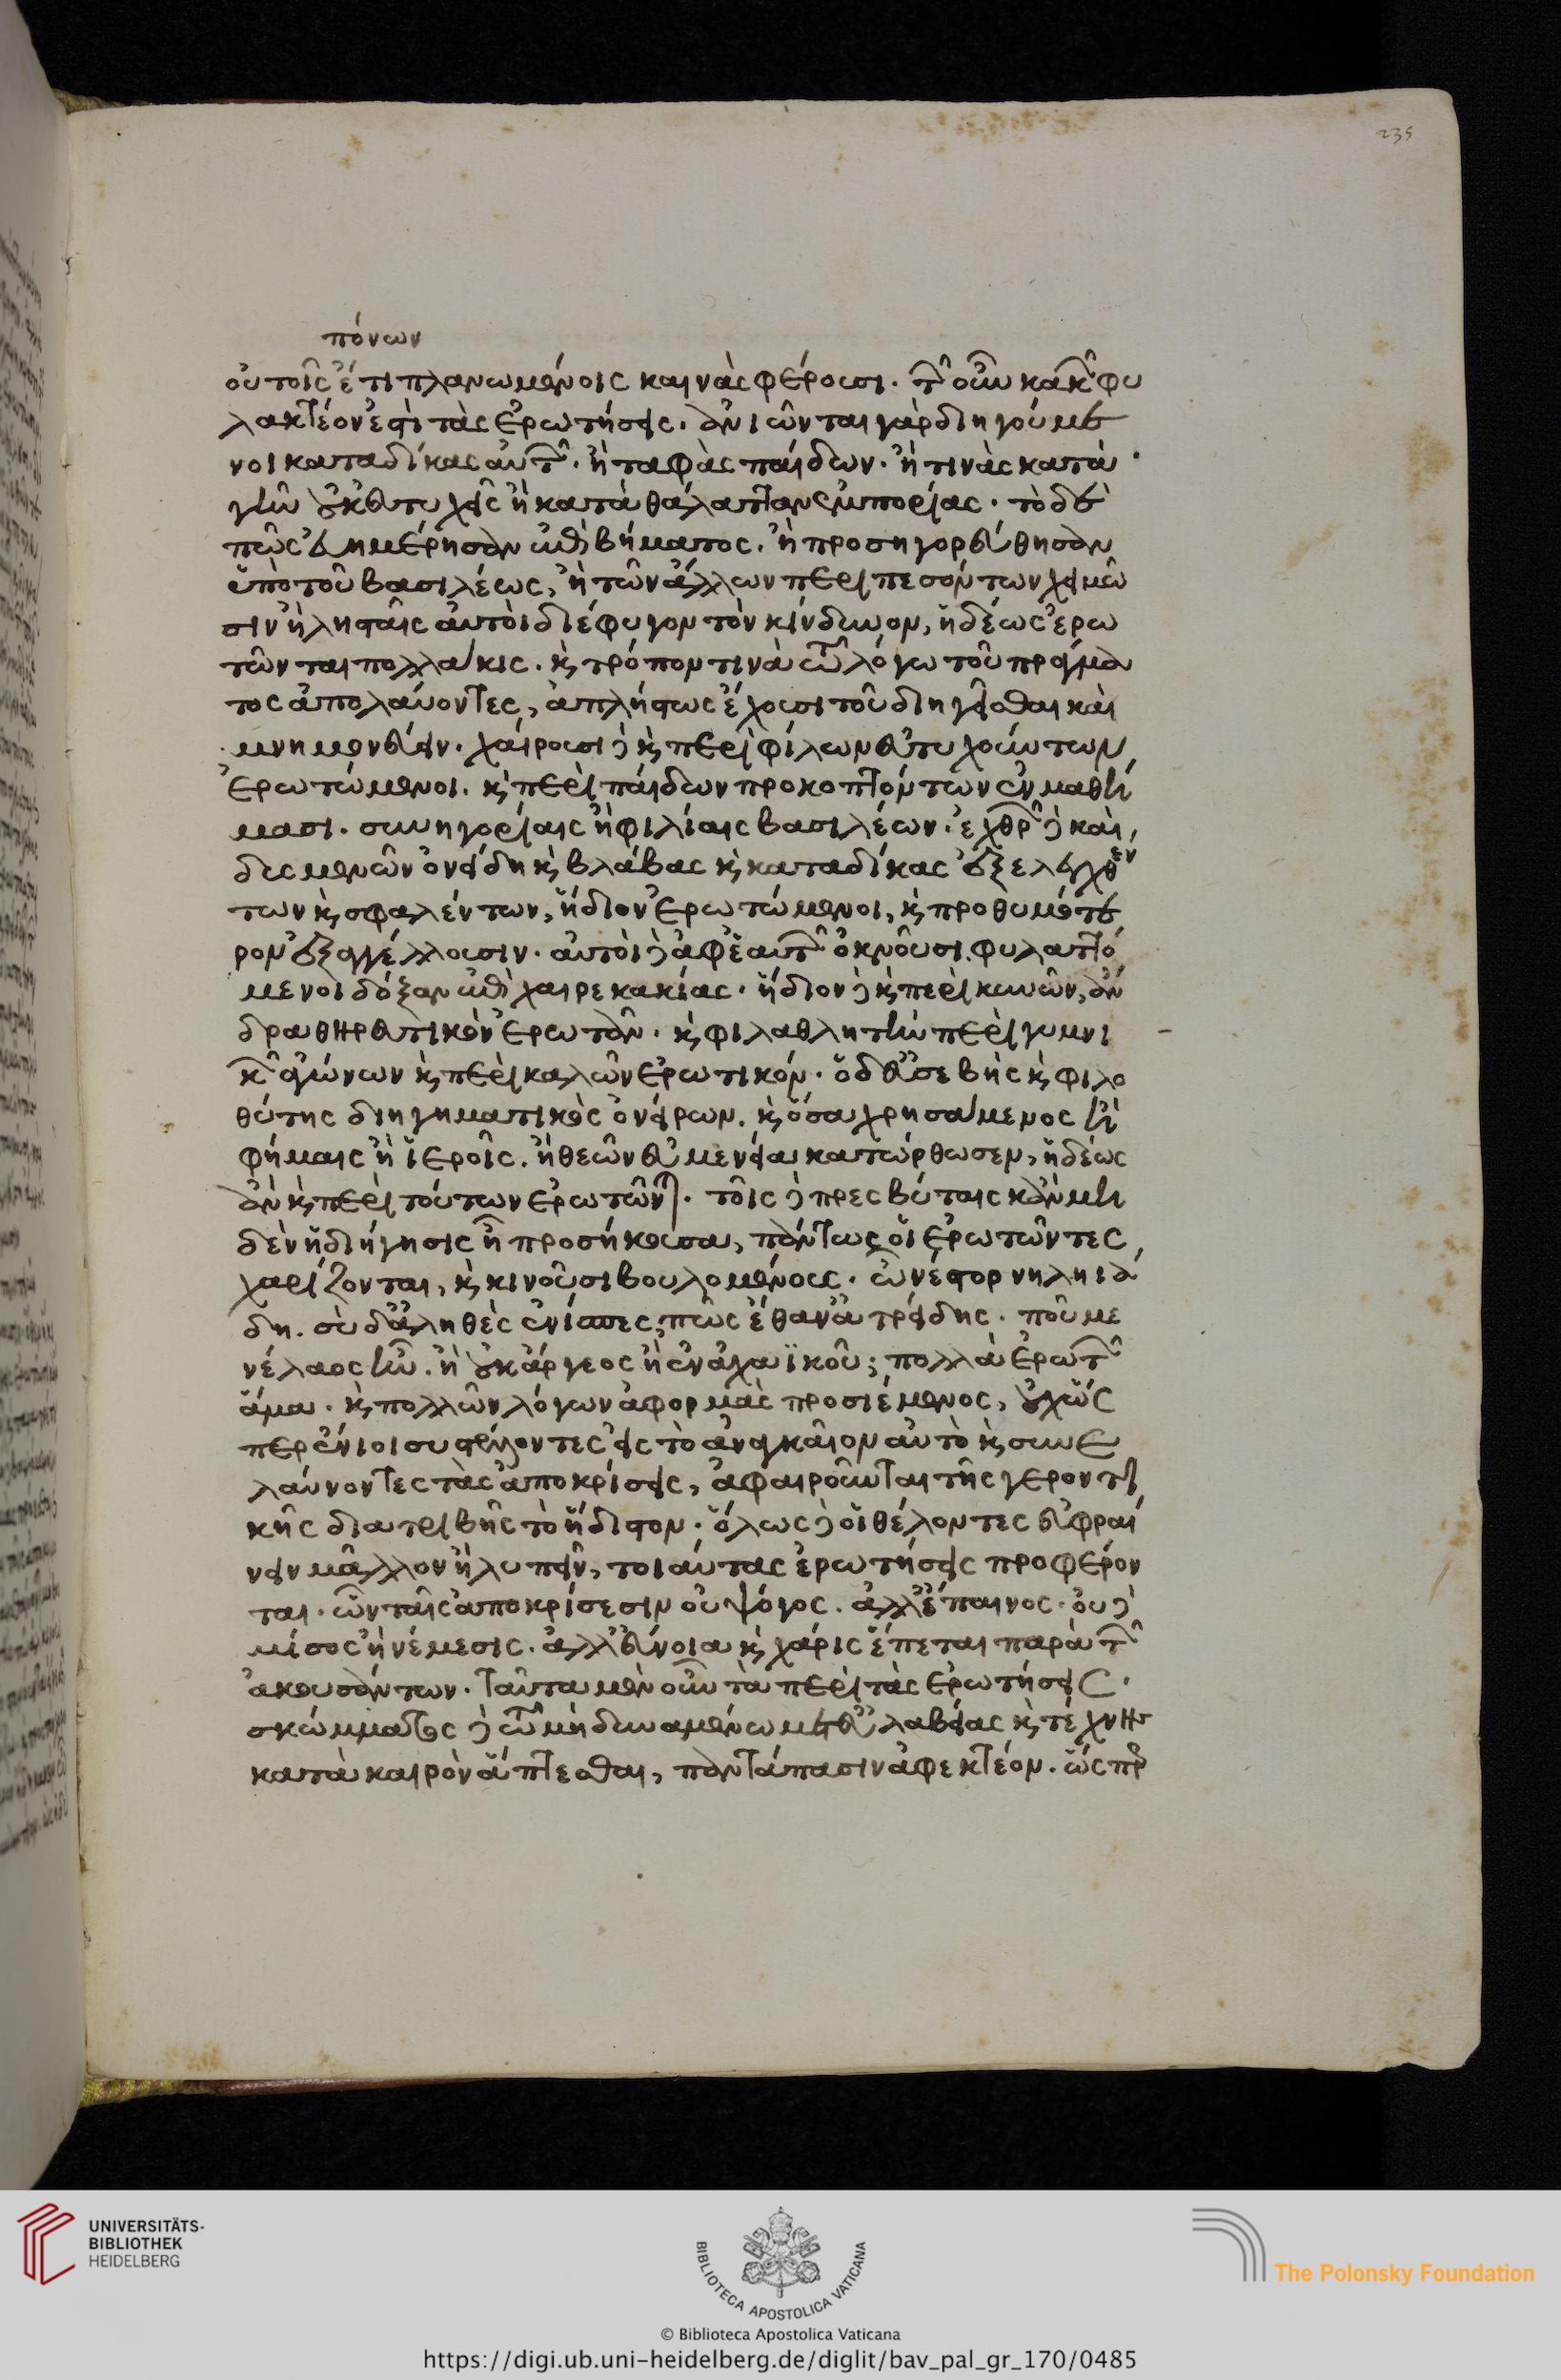 235
πόνων
οὐ τοῖς ἔτι πλανωμένοις καὶ νὰς φέρουσι. τῶν οὖν κακῶν φυ
λακτέον ἐστὶ τὰς ἐρωτήσεις. ἀνιῶνται γὰρ διηγούμε
νοι καταδίκας αὐτῶν. ἢ ταφὰς παίδων. ἢ τινὰς κατὰ
γῆν οὐκ εὐτυχεῖς ἢ κατὰ θάλατταν ἐμπορίας. τὸ δὲ
πῶς εὐημέρησαν ἐπὶ βήματος. ἢ προσηγορεύθησαν
ὑπὸ τοῦ βασιλέως, ἢ τῶν ἄλλων περιπεσόντων χειμῶ
σιν ἢ λῃσταῖς αὐτοὶ διέφυγον τὸν κίνδυνον, ἡδέως ἐρω
τῶνται πολλάκις. καὶ τρόπον τινὰ ἐν τῷ λόγω τοῦ πράγμα
τος ἀπολαύοντες, ἀπλήστως ἔχουσι τοῦ διηγεῖσθαι καὶ
μνημονεύειν. χαίρουσι δὲ καὶ περὶ φίλων εὐτυχούντων
ἐρωτώμενοι. καὶ περὶ παίδων προκοπτόντων ἐν μαθή
μασι. συνηγορίαις ἢ φιλίαις βασιλέων. ἐχθρῶν δὲ καὶ
δυσμενῶν ὀνείδη καὶ βλάβας καὶ καταδίκας ἐξελεγχθέν
των καὶ σφαλέντων, ἥδιον ἐρωτώμενοι, καὶ προθυμότε
ρον ἐξαγγέλλουσιν. αὐτοὶ δὲ ἀφ' ἑαυτῶν ὀκνοῦσι φυλαττό
μενοι δόξαν ἐπιχαιρεκακίας. ἥδιον δὲ καὶ περὶ κυνῶν, ἄν
δρα θηρευτικὸν ἐρωτᾶν. καὶ φιλαθλητὴν περὶ γυμνι
κῶν ἀγώνων καὶ περὶ καλῶν ἐρωτικόν. ὁ δ' εὐσεβὴς καὶ φιλο
θύτης διηγηματικὸς ὀνείρων. καὶ ὅσα χρησάμενος ἢ
φήμαις ἢ ἱεροῖς. ἢ θεῶν εὐμενείαι κατώρθωσεν, ἡδέως
ἂν καὶ περὶ τούτων ἐρωτῶνται. τοῖς δὲ πρεσβύταις κἂν μη
δὲν ἡ διήγησις ᾖ προσήκουσα, πάντως οἱ ἐρωτῶντες
χαρίζονται, καὶ κινοῦσι βουλομένους. ὦ νέστορ νηληιά
δη. σὺ δ' ἀληθὲς ἐνίσπες, πῶς ἔθαν' ἀτρείδης. ποῦ με
νέλαος ἦν. ἢ οὐκ ἄργεος ἦεν ἀχαϊκοῦ; πολλὰ ἐρωτῶν
ἅμα. καὶ πολλῶν λόγων ἀφορμὰς προσιέμενος, οὐχ ὥς
περ ἔνιοι συστέλλοντες εἰς τὸ ἀναγκαῖον αὐτὸ καὶ συνε
λαύνοντες τὰς ἀποκρίσεις, ἀφαιροῦνται τῆς γεροντι
κῆς διατριβῆς τὸ ἥδιστον. ὅλως δὲ οἱ θέλοντες εὐφραί
νειν μᾶλλον ἢ λυπεῖν, τοιαύτας ἐρωτήσεις προφέρον
ται. ὧν ταῖς ἀποκρίσεσιν οὐ ψόγος. ἀλλ' ἔπαινος. οὐ δὲ
μίσος ἢ νέμεσις. ἀλλ' εὔνοια καὶ χάρις ἕπεται παρὰ τῶν
ἀκουσάντων. ταῦτα μὲν οὖν τὰ περὶ τὰς ἐρωτήσεις.
σκώμματος δὲ τῷ μὴ δυναμένω μετ' εὐλαβείας καὶ τέχνης
κατὰ καιρὸν ἅπτεσθαι, παντάπασιν ἀφεκτέον. ὥσπερ
UNIVERSITÄTS-
BIBLIOTHEK
HEIDELBERG
BIBLIOTECA APOSTOLICA VATICANA
The Polonsky Foundation
© Biblioteca Apostolica Vaticana
https://digi.ub.uni-heidelberg.de/diglit/bav_pal_gr_170/0485